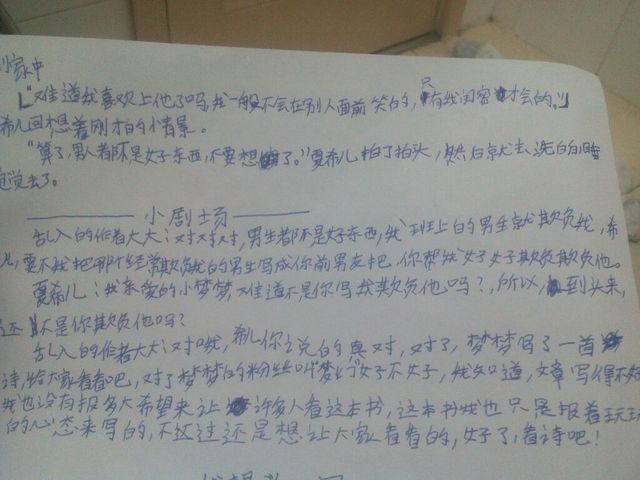 家中
"难道我喜欢上他了吗,我一般不会在别人面前笑的,只有我闺密才会的。"
希儿回想着刚才的小情景。
"算了,男人都不是女子东西,不要想了。"夏希儿拍了拍头,然后就去洗白白睡
觉去了。
小剧场
乱入的作者大大:对对对,男生都不是好东西,我班上的男生就欺负我,希
儿,要不我把那个经常欺负我的男生写成你前男友把,你想我好好欺负欺负他。
夏希儿:我亲爱的小梦梦,难道不是你写我欺负他吗?,所以,到头来,
还不是你欺负他吗?
乱入的作者大大:对哦,希儿你说的真对,对了,梦梦写了一首
诗,给大家看看吧,对了梦梦的粉丝叫"梦"好不好,我知道,文章写得不好
我也没有报多大希望来让许多人看这本书,这本书我也只是报着玩玩
的心态来写的,不过还是想让大家看看的,好了,看诗吧!